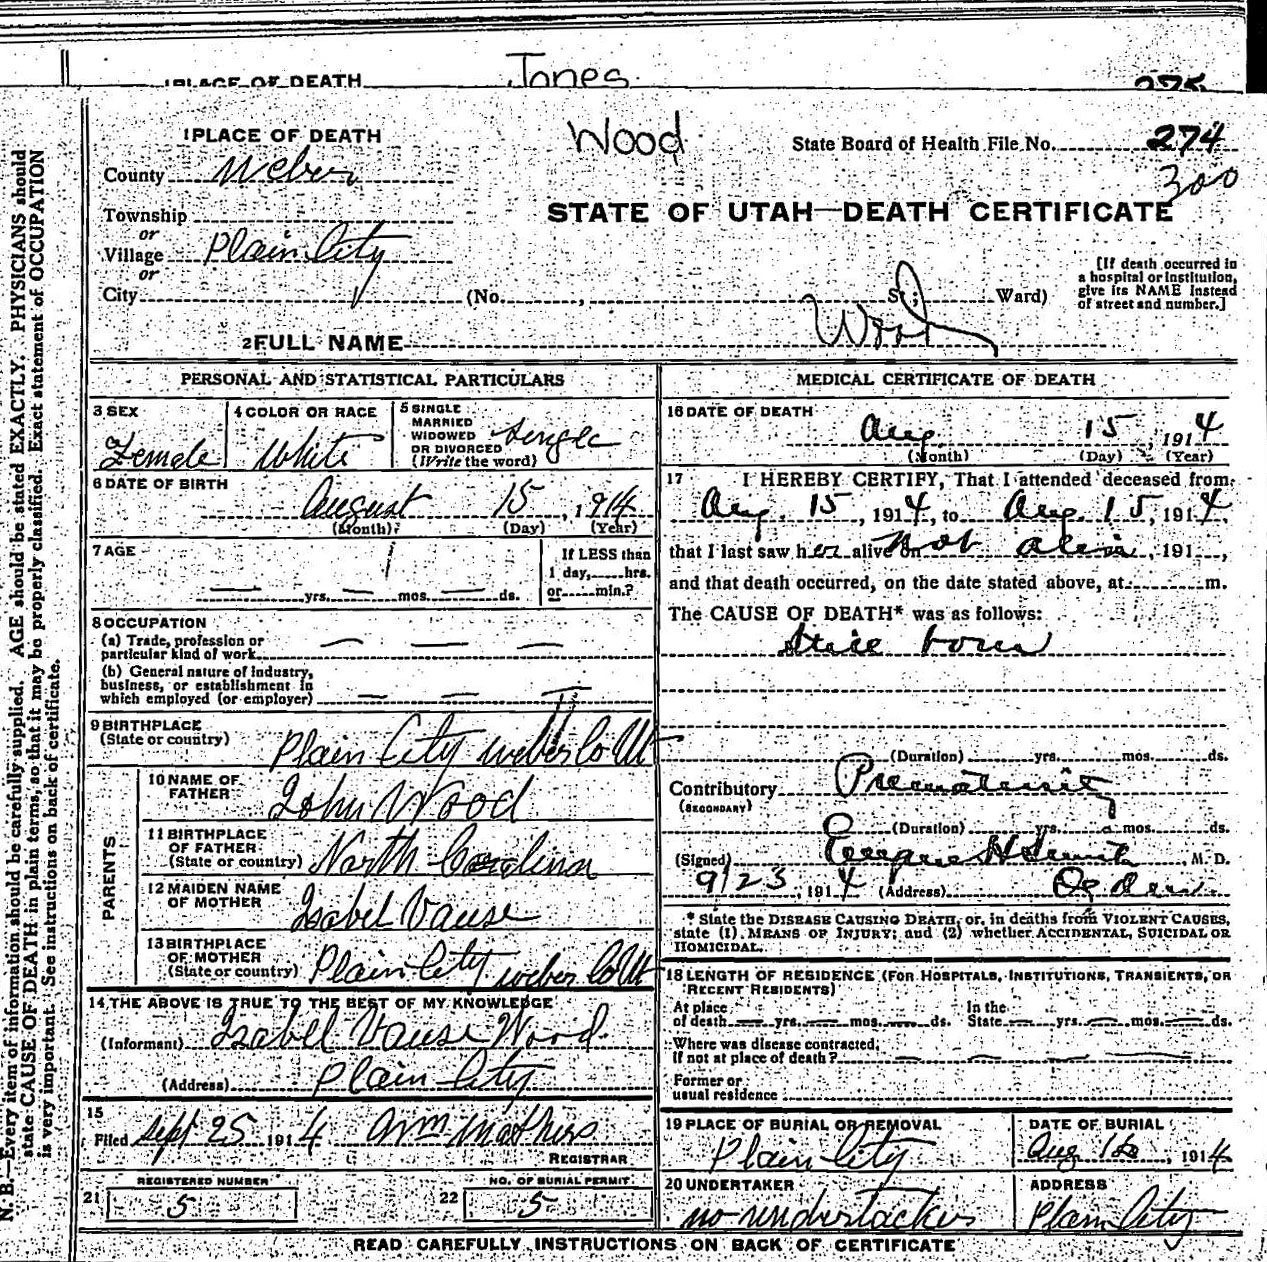 1 PLACE OF DEATH Jones 275
1 PLACE OF DEATH Wood State Board of Health File No. 274
County Weber 300
STATE OF UTAH—DEATH CERTIFICATE
Township
or
Village Plain City
or
City (No. , St; Ward)
[If death occurred in
a hospital or institution,
give its NAME instead
of street and number.]
2 FULL NAME Wood
PERSONAL AND STATISTICAL PARTICULARS
3 SEX Female
4 COLOR OR RACE White
5 SINGLE
MARRIED
WIDOWED
OR DIVORCED
(Write the word) Single
6 DATE OF BIRTH
August 15, 1914
(Month) (Day) (Year)
7 AGE
yrs. mos. ds.
If LESS than
1 day, hrs.
or min.?
8 OCCUPATION
(a) Trade, profession or
particular kind of work
(b) General nature of industry,
business, or establishment in
which employed (or employer)
9 BIRTHPLACE
(State or country) Plain City Weber Co Ut
PARENTS
10 NAME OF
FATHER John Wood
11 BIRTHPLACE
OF FATHER
(State or country) North Carolina
12 MAIDEN NAME
OF MOTHER Isabel Vause
13 BIRTHPLACE
OF MOTHER
(State or country) Plain City Weber Co Ut
14 THE ABOVE IS TRUE TO THE BEST OF MY KNOWLEDGE
(Informant) Isabel Vause Wood
(Address) Plain City
15
Filed Sept 25 1914
REGISTRAR
REGISTERED NUMBER
21 5
NO. OF BURIAL PERMIT
22 5
MEDICAL CERTIFICATE OF DEATH
16 DATE OF DEATH
Aug. 15, 1914
(Month) (Day) (Year)
17 I HEREBY CERTIFY, That I attended deceased from
Aug. 15, 1914, to Aug. 15, 1914,
that I last saw her alive on not alive, 191 ,
and that death occurred, on the date stated above, at m.
The CAUSE OF DEATH* was as follows:
Still born
(Duration) yrs. mos. ds.
Contributory Prematurity
(SECONDARY)
(Duration) yrs. mos. ds.
(Signed) Eugene H Smith M. D.
9/23, 1914 (Address) Ogden.
* State the DISEASE CAUSING DEATH, or, in deaths from VIOLENT CAUSES,
state (1) MEANS OF INJURY; and (2) whether ACCIDENTAL, SUICIDAL OR
HOMICIDAL.
18 LENGTH OF RESIDENCE (FOR HOSPITALS, INSTITUTIONS, TRANSIENTS, OR
RECENT RESIDENTS)
At place
of death yrs. mos. ds.
In the
State yrs. mos. ds.
Where was disease contracted,
if not at place of death?
Former or
usual residence
19 PLACE OF BURIAL OR REMOVAL
Plain City
DATE OF BURIAL
Aug 16, 1914
20 UNDERTAKER
no undertacker
ADDRESS
Plain City
READ CAREFULLY INSTRUCTIONS ON BACK OF CERTIFICATE
N. B.—Every item of information should be carefully supplied. AGE should be stated EXACTLY. PHYSICIANS should
state CAUSE OF DEATH in plain terms, so that it may be properly classified. Exact statement of OCCUPATION
is very important. See instructions on back of certificate.